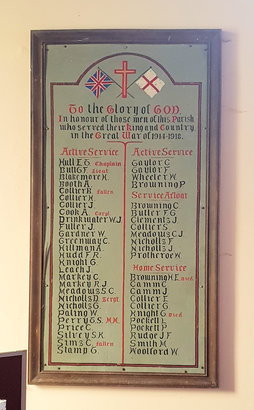 To the Glory of GOD.
In honour of those men of this Parish
who served their King and Country
in the Great War of 1914-1918.
Active Service
Hull E.G. Chaplain
Bull G.F. Lieut
Blakemore H.
Booth A.
Collier B. Fallen
Collier H.
Collier J.
Cook A. Corpl
Drinkwater W.J.
Fuller J.
Gardner W.
Greenway C.
Hillman A.
Hudd F.R.
Knight G.
Leach J.
Markey C.
Markey R.J.
Meadows S.C.
Nicholls D. Sergt
Nicholls G.
Paling W.
Perry G.S. M.M.
Price C.
Silvey S.K.
Sims C. Fallen
Stamp G.
Active Service
Gaylor C.
Gaylor F.
Wheeler W.
Browning P.
Service Afloat
Browning C.
Butler F.G.
Clements J.
Collier S.
Meadows C.J.
Nicholls F.
Nicholls J.
Protheroe W.
Home Service
Browning H.E. Died
Camm C.
Camm J.
Collier E.
Collier G.
Knight G. Died
Pockett L.
Pockett P.
Rudge J.F.
Smith H.
Woolford W.